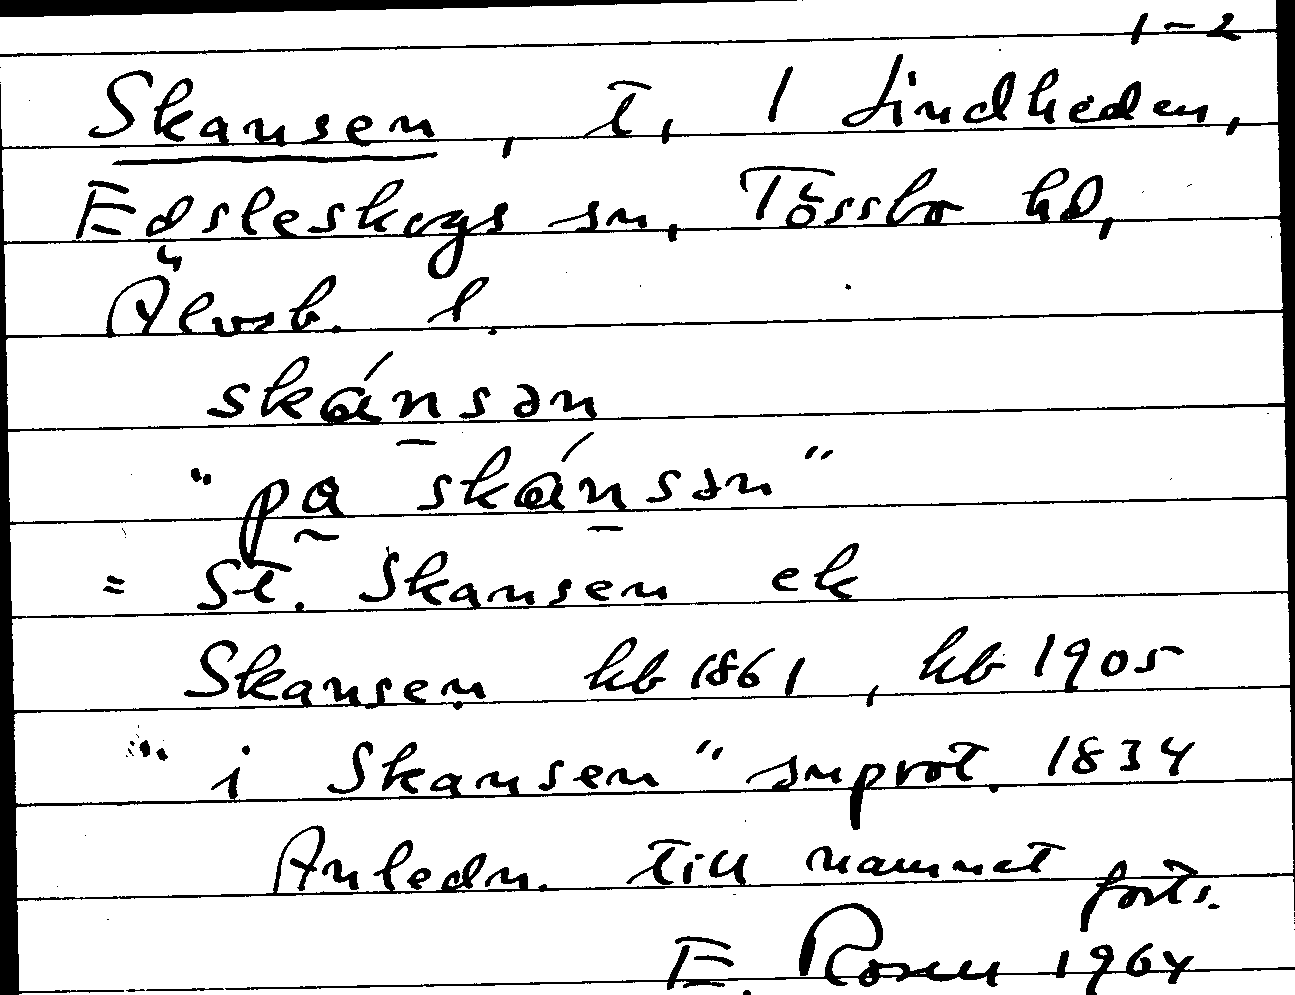 1–2
Skansen, t, 1 Lindheden,
Edsleskogs sn, Tössbo hd,
Älvsb. l.
skánsən
"pa skánsən"
= St. Skansen ek
Skansen hb 1861, hb 1905
"i Skansen" snprot. 1834
Anledn. till namnet
forts.
E. Rosen 1964